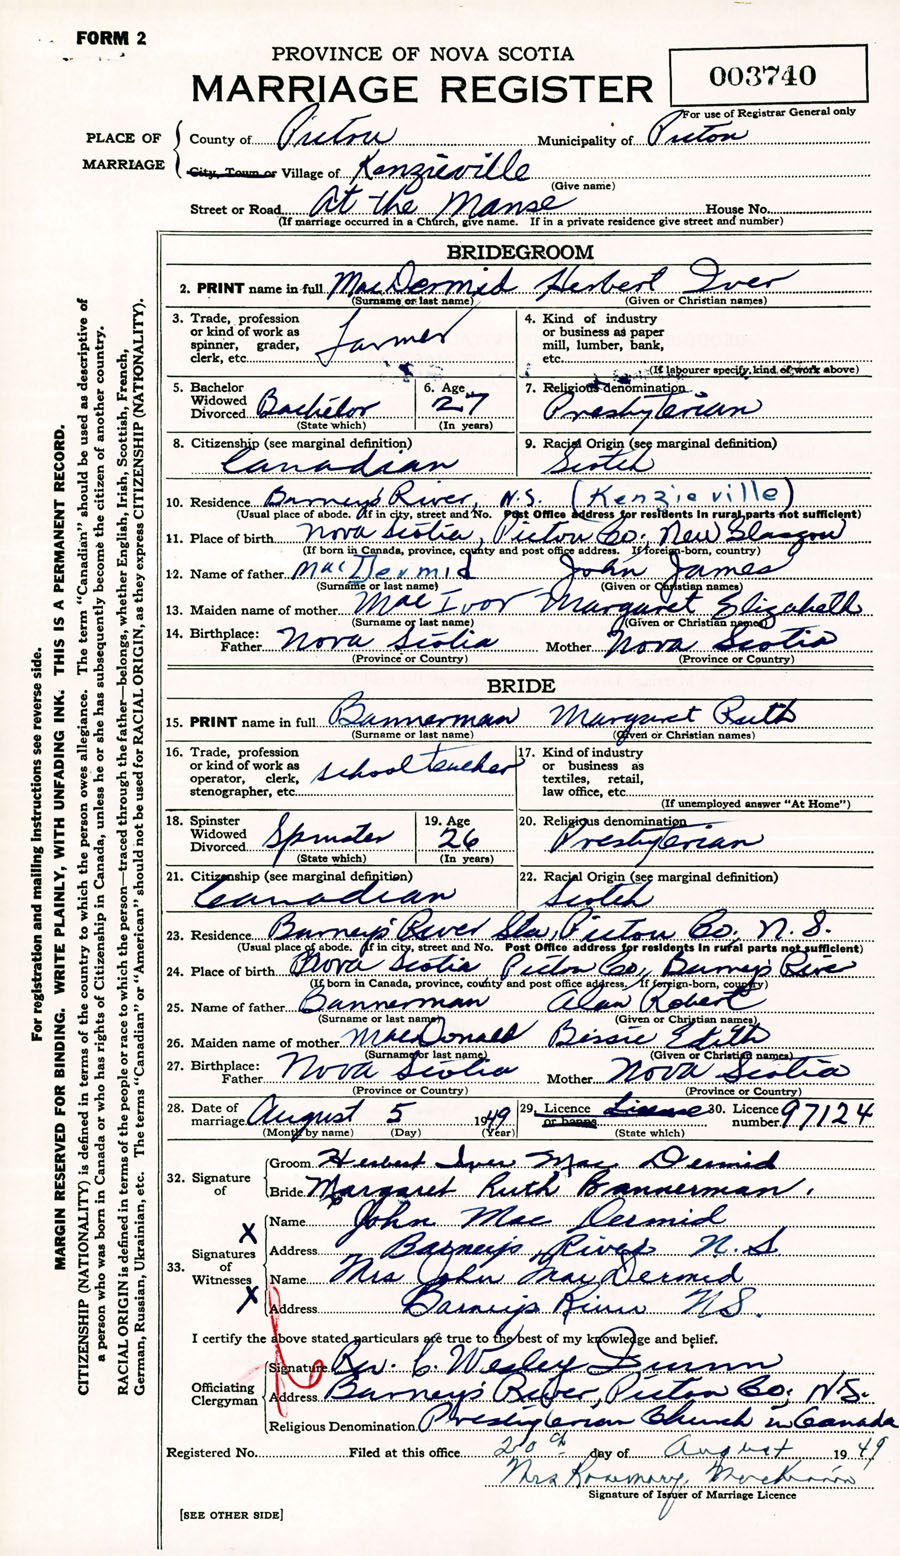 FORM 2
PROVINCE OF NOVA SCOTIA
MARRIAGE REGISTER
003740
For use of Registrar General only
PLACE OF MARRIAGE
County of Pictou Municipality of Pictou
City, Town or Village of Kenzieville
(Give name)
Street or Road At the Manse House No.
(If marriage occurred in a Church, give name. If in a private residence give street and number)
BRIDEGROOM
2. PRINT name in full MacDermid Herbert Iver
(Surname or last name) (Given or Christian names)
3. Trade, profession or kind of work as spinner, grader, clerk, etc. farmer
4. Kind of industry or business as paper mill, lumber, bank, etc.
(If labourer specify kind of work above)
5. Bachelor Widowed Divorced Bachelor
(State which)
6. Age 27
(In years)
7. Religious denomination Presbyterian
8. Citizenship (see marginal definition) Canadian
9. Racial Origin (see marginal definition) Scotch
10. Residence Barney's River, N.S. (Kenzieville)
(Usual place of abode. If in city, street and No. Post Office address for residents in rural parts not sufficient)
11. Place of birth Nova Scotia, Pictou Co., New Glasgow
(If born in Canada, province, county and post office address. If foreign-born, country)
12. Name of father MacDermid John James
(Surname or last name) (Given or Christian names)
13. Maiden name of mother MacIvor Margaret Elizabeth
(Surname or last name) (Given or Christian names)
14. Birthplace: Father Nova Scotia Mother Nova Scotia
(Province or Country) (Province or Country)
BRIDE
15. PRINT name in full Bannerman Margaret Ruth
(Surname or last name) (Given or Christian names)
16. Trade, profession or kind of work as operator, clerk, stenographer, etc. school teacher
17. Kind of industry or business as textiles, retail, law office, etc.
(If unemployed answer "At Home")
18. Spinster Widowed Divorced Spinster
(State which)
19. Age 26
(In years)
20. Religious denomination Presbyterian
21. Citizenship (see marginal definition) Canadian
22. Racial Origin (see marginal definition) Scotch
23. Residence Barney's River Sta, Pictou Co., N.S.
(Usual place of abode. If in city, street and No. Post Office address for residents in rural parts not sufficient)
24. Place of birth Nova Scotia Pictou Co., Barney's River
(If born in Canada, province, county and post office address. If foreign-born, country)
25. Name of father Bannerman Alan Robert
(Surname or last name) (Given or Christian names)
26. Maiden name of mother MacDonald Bessie Edith
(Surname or last name) (Given or Christian names)
27. Birthplace: Father Nova Scotia Mother Nova Scotia
(Province or Country) (Province or Country)
28. Date of marriage August 5 1949
(Month by name) (Day) (Year)
29. Licence or banns License
(State which)
30. Licence number 97124
32. Signature of
Groom Herbert Iver MacDermid
Bride Margaret Ruth Bannerman.
33. Signatures of Witnesses
X Name John MacDermid
Address Barneys River N.S
Name Mrs John MacDermid
X Address Barneys River NS.
I certify the above stated particulars are true to the best of my knowledge and belief.
Officiating Clergyman
Signature Rev. C. Wesley Dunn
Address Barney's River, Pictou Co., N.S.
Religious Denomination Presbyterian Church in Canada
Registered No. Filed at this office 20th day of August 1949
Mrs Rosemary
Signature of Issuer of Marriage Licence
[SEE OTHER SIDE]
For registration and mailing instructions see reverse side.
MARGIN RESERVED FOR BINDING. WRITE PLAINLY, WITH UNFADING INK. THIS IS A PERMANENT RECORD.
CITIZENSHIP (NATIONALITY) is defined in terms of the country to which the person owes allegiance. The term "Canadian" should be used as descriptive of
a person who was born in Canada or who has rights of Citizenship in Canada, unless he or she has subsequently become the citizen of another country.
RACIAL ORIGIN is defined in terms of the people or race to which the person—traced through the father—belongs, whether English, Irish, Scottish, French,
German, Russian, Ukrainian, etc. The terms "Canadian" or "American" should not be used for RACIAL ORIGIN, as they express CITIZENSHIP (NATIONALITY).